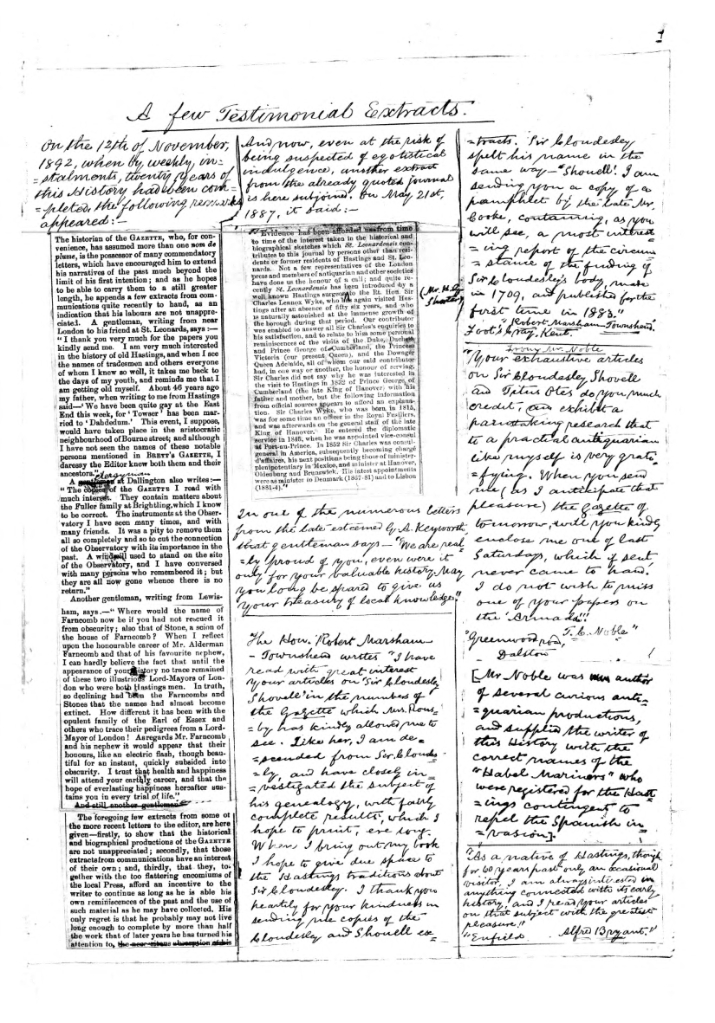 1
A few Testimonial Extracts.
On the 12th of November,
1892, when by weekly, in-
=stalments, twenty years of
this History had been com-
=pleted, the following remarks
appeared :-
The historian of the GAZETTE, who, for con-
venience, has assumed more than one nom de
plume, is the possessor of many commendatory
letters, which have encouraged him to extend
his narratives of the past much beyond the
limit of his first intention; and as he hopes
to be able to carry them to a still greater
length, he appends a few extracts from com-
munications quite recently to hand, as an
indication that his labours are not unappre-
ciated. A gentleman, writing from near
London to his friend at St. Leonards, says :—
"I thank you very much for the papers you
kindly send me. I am very much interested
in the history of old Hastings, and when I see
the names of tradesmen and others everyone
of whom I knew so well, it takes me back to
the days of my youth, and reminds me that I
am getting old myself. About 46 years ago
my father, when writing to me from Hastings
said—'We have been quite gay at the East
End this week, for 'Towser' has been mar-
ried to 'Dahdedum.' This event, I suppose,
would have taken place in the aristocratic
neighbourhood of Bourne street; and although
I have not seen the names of these notable
persons mentioned in BRETT'S GAZETTE, I
daresay the Editor knew both them and their
ancestors."
A clergyman at Dallington also writes:—
"The copies of the GAZETTE I read with
much interest. They contain matters about
the Fuller family at Brightling, which I know
to be correct. The instruments at the Obser-
vatory I have seen many times, and with
many friends. It was a pity to remove them
all so completely and so to cut the connection
of the Observatory with its importance in the
past. A windmill used to stand on the site
of the Observatory, and I have conversed
with many persons who remembered it; but
they are all now gone whence there is no
return."
Another gentleman, writing from Lewis-
ham, says.—"Where would the name of
Farncomb now be if you had not rescued it
from obscurity; also that of Stone, a scion of
the house of Farncomb? When I reflect
upon the honourable career of Mr. Alderman
Farncomb and that of his favourite nephew,
I can hardly believe the fact that until the
appearance of your history no trace remained
of these two illustrious Lord-Mayors of Lon-
don who were both Hastings men. In truth,
so declining had been the Farncombs and
Stones that the names had almost become
extinct. How different it has been with the
opulent family of the Earl of Essex and
others who trace their pedigrees from a Lord-
Mayor of London! Asregards Mr. Farncomb
and his nephew it would appear that their
honours, like an electric flash, though beau-
tiful for an instant, quickly subsided into
obscurity. I trust that health and happiness
will attend your earthly career, and that the
hope of everlasting happiness hereafter sus-
tains you in every trial of life."
And still another gentleman
The foregoing few extracts from some of
the more recent letters to the editor, are here
given—firstly, to show that the historical
and biographical productions of the GAZETTE
are not unappreciated; secondly, that those
extracts from communications have an interest
of their own; and, thirdly, that they, to-
gether with the too flattering encomiums of
the local Press, afford an incentive to the
writer to continue as long as he is able his
own reminiscences of the past and the use of
such material as he may have collected. His
only regret is that he probably may not live
long enough to complete by more than half
the work that of later years he has turned his
attention to,
And now, even at the risk of
being suspected of egotistical
indulgence, another extract
from the already quoted journal
is here subjoined. On May 21st,
1887, it said :-
Evidence has been afforded us from time
to time of the interest taken in the historical and
biographical sketches which St. Leonardensis con-
tributes to this journal by persons other than resi-
dents or former residents of Hastings and St. Leo-
nards. Not a few representatives of the London
press and members of antiquarian and other societies
have done us the honour of a call; and quite re-
cently St. Leonardensis has been introduced by a
well known Hastings surgeon to the Rt. Hon. Sir
Charles Lennox Wyke, who again visited Hast-
ings after an absence of fifty six years, and who
is naturally astonished at the immense growth of
the borough during that period. Our contributor
was enabled to answer all Sir Charles's enquiries to
his satisfaction, and to relate to him some personal
reminiscences of the visits of the Duke, Duchess
and Prince George of Cumberland, the Princess
Victoria (our present Queen), and the Dowager
Queen Adelaide, all of whom our said contributor
had, in one way or another, the honour of serving.
Sir Charles did not say why he was interested in
the visit to Hastings in 1832 of Prince George of
Cumberland (the late King of Hanover) with his
father and mother, but the following information
from official sources appears to afford an explana-
tion. Sir Charles Wyke, who was born in 1815,
was for some time an officer in the Royal Fusiliers,
and was afterwards on the general staff of the late
King of Hanover. He entered the diplomatic
service in 1845, when he was appointed vice-consul
at Port-au-Prince. In 1852 Sir Charles was consul-
general in America, subsequently becoming chargé
d'affaires, his next positions being those of minister-
plenipotentiary in Mexico, and minister at Hanover,
Oldenburg and Brunswick. His latest appointments
were as minister to Denmark and to Lisbon
(1881-4)."
(Mr. H.
Shorter)
In one of the numerous letters
from the late esteemed Gy. A. Keyworth,
that gentleman says - "We are real-
=ly proud of you, even were it
only for your valuable history. May
you long be spared to give us
your treasury of local knowledge."
The Hon. Robert Marsham
-Townshend writes "I have
read with great interest
your articles on 'Sir Cloudesley
Shovell' in the numbers of
the Gazette which Mrs. Rous-
=by has kindly allowed me to
see. Like her, I am de-
=scended from Sir Cloudes-
=ly, and have closely in-
=vestigated the subject of
his genealogy, with fairly
complete results, which I
hope to print, ere long.
When I bring out my book
I hope to give due space to
the Hastings traditions about
Sir Cloudesley. I thank you
heartily for your kindness in
sending me copies of the
Cloudesley and Shovell ex=
=tracts. Sir Cloudesley
spelt his name in the
same way - 'Shovell'. I am
sending you a copy of a
pamphlet by the late Mr.
Cooke, containing, as you
will see, a most interest-
=ing report of the circum-
=stance of the finding of
Sir Cloudesley's body, made
in 1709, and published for the
first time in 1883."
"Robert Marsham Townshend.
Foot's Cray, Kent"
From Mr. Noble
"Your exhaustive articles
on Sir Cloudesley Shovell
and Titus Oates do you much
credit, and exhibit a
painstaking research that
to a practical antiquarian
like myself is very grati-
=fying. When you send
me (as I anticipate that
pleasure) the Gazette of
tomorrow, will you kindly
enclose me one of last
Saturdays, which if sent
never came to hand.
I do not wish to miss
one of your papers on
the 'Armada'."
T. C. Noble"
"Greenwood road,
Dalston
[Mr Noble was an author
of several curious anti-
=quarian productions,
and supplied the writer of
this History with the
correct names of the
"Habel Mariners" who
were registered for the Hast-
=ings contingent to
repel the Spanish in-
=vasion].
"As a native of Hastings, though
for 60 years past only an occasional
visitor, I am always interested in
anything connected with its early
history, and I read your articles
on that subject with the greatest
pleasure."
"Enfield Alfred Bryant."